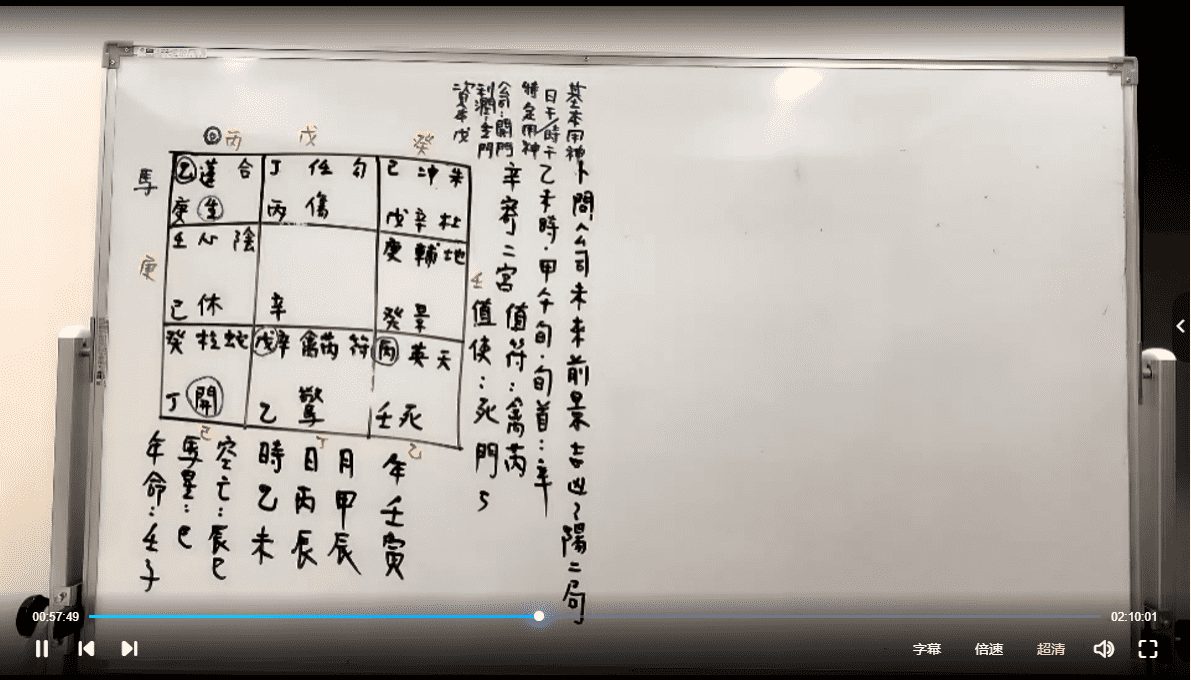 基本用神
日干/時干
特定用神
公司:開門
利潤:生門
資本戊
卜問公司未來前景吉凶?陽二局
乙未時·甲午旬·旬首:辛
辛寄二宮 值符:禽芮
值使:死門5
丙 戊 癸
馬
庚
壬
己 丁 乙
乙 蓬 合
庚 生
丁 任 勾
丙 傷
己 冲 朱
戊 辛 杜
壬 心 陰
己 休
辛
庚 輔 地
癸 景
癸 柱 蛇
丁 開
戊 辛 禽芮 符
乙 驚
丙 英 天
壬 死
年壬寅
月甲辰
日丙辰
時乙未
空亡:辰巳
馬星:巳
年命:壬子
00:57:49
02:10:01
字幕 倍速 超清